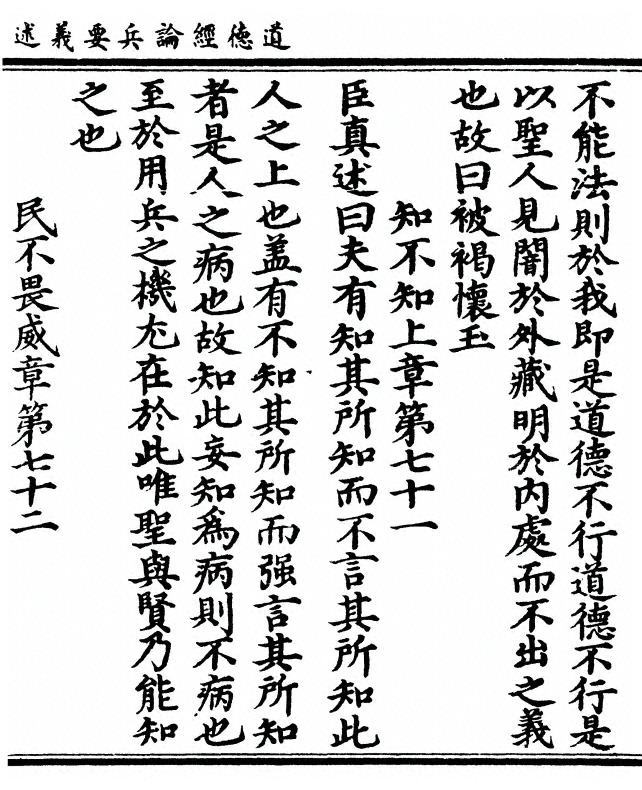 道德經論兵要義述
不能法則於我即是道德不行道德不行是
以聖人見闇於外藏明於内處而不出之義
也故曰被褐懷玉
知不知上章第七十一
臣真述曰夫有知其所知而不言其所知此
人之上也盖有不知其所知而强言其所知
者是人之病也故知此妄知爲病則不病也
至於用兵之機尤在於此唯聖與賢乃能知
之也
民不畏威章第七十二